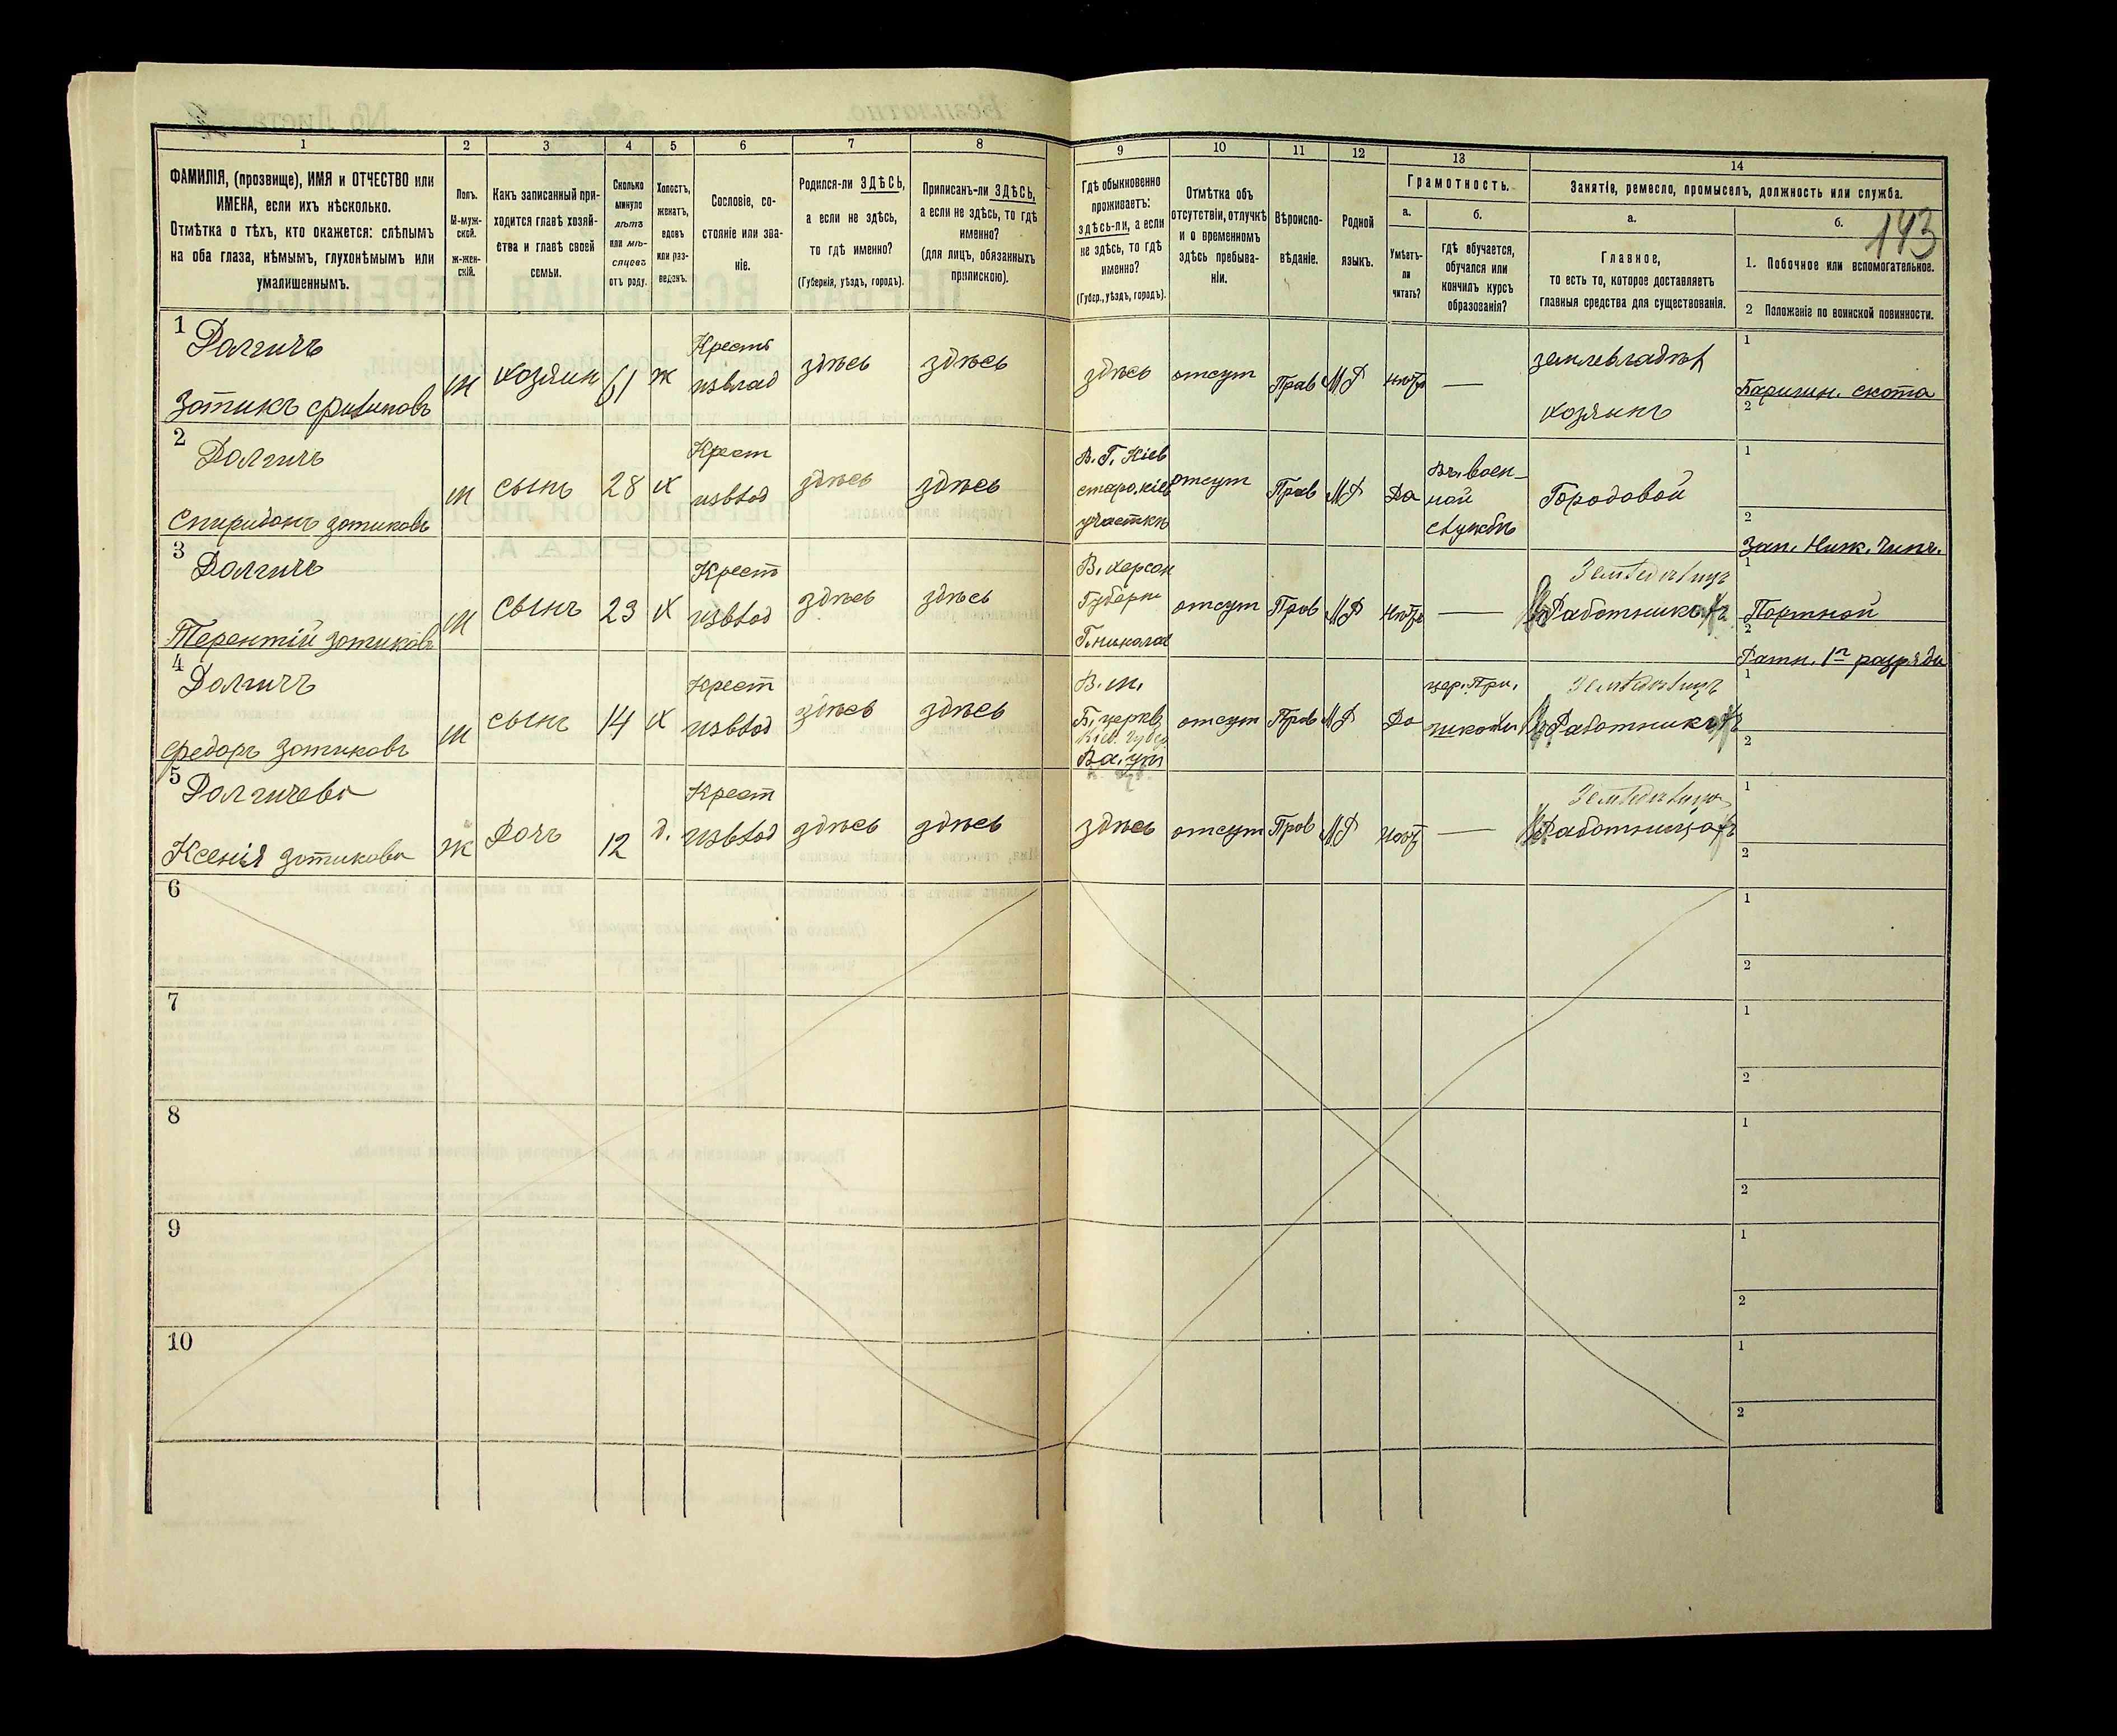 1 2 3 4 5 6 7 8
ФАМИЛІЯ, (прозвище), ИМЯ и ОТЧЕСТВО или
ИМЕНА, если ихъ нѣсколько.
Отмѣтка о тѣхъ, кто окажется: слѣпымъ
на оба глаза, нѣмымъ, глухонѣмымъ или
умалишеннымъ.
Полъ.
М-муж-
ской.
Ж-жен-
скій.
Какъ записанный при-
ходится главѣ хозяй-
ства и главѣ своей
семьи.
Сколько
минуло
лѣтъ
или мѣ-
сяцевъ
отъ роду.
Холостъ,
женатъ,
вдовъ
или раз-
веденъ.
Сословіе, со-
стояніе или зва-
ніе.
Родился-ли ЗДѢСЬ,
а если не здѣсь,
то гдѣ именно?
(Губернія, уѣздъ, городъ).
Приписанъ-ли ЗДѢСЬ,
а если не здѣсь, то гдѣ
именно?
(для лицъ, обязанныхъ
припискою).
9 10 11 12 13 14
Гдѣ обыкновенно
проживаетъ:
здѣсь-ли, а если
не здѣсь, то гдѣ
именно?
(Губер., уѣздъ, городъ).
Отмѣтка объ
отсутствіи, отлучкѣ
и о временномъ
здѣсь пребыва-
ніи.
Вѣроиспо-
вѣданіе.
Родной
языкъ.
Грамотность.
а.
Умѣетъ-
ли
читать?
б.
гдѣ обучается,
обучался или
кончилъ курсъ
образованія?
Занятіе, ремесло, промыселъ, должность или служба.
а.
Главное,
то есть то, которое доставляетъ
главныя средства для существованія.
б.
143
1. Побочное или вспомогательное.
2 Положеніе по воинской повинности.
1
Долгичъ
Зотикъ
м
хозяин
61
ж
Крест
здѣсь
здѣсь
здѣсь
отсут
Прав
М.Р
—
хозяинъ
1
скота
2
2
Долгичъ
Спиридонъ Зотиковъ
м
сынъ
28
х
Крест
здѣсь
здѣсь
В. Г. Кіев
старо. кіев
участкѣ
отсут
Прав
М.Р
Да
Въ воен-
ной
службѣ
Городовой
1
2
Зап. Ниж. Чинъ.
3
Долгичъ
Терентій Зотиковъ
м
сынъ
23
х
Крест
здѣсь
здѣсь
В. херсон
Губерни
Г. николае
отсут
Прав
М.Р
—
Земледѣлецъ
Работникъ
1
Портной
2
Ратн. 1го разряда
4
Долгичъ
Федоръ Зотиковъ
м
сынъ
14
х
Крест
здѣсь
здѣсь
В. м.
Б. церкв
Кіев. Губер.
отсут
Прав
М.Р
Да
цер. При.
школы
Земледѣлецъ
Работникъ
1
2
5
Долгичева
Ксенія Зотикова
ж
Дочъ
12
д.
Крест
здѣсь
здѣсь
здѣсь
отсут
Прав
М.Р
—
Работница
1
2
6
1
2
7
1
2
8
1
2
9
1
2
10
1
2